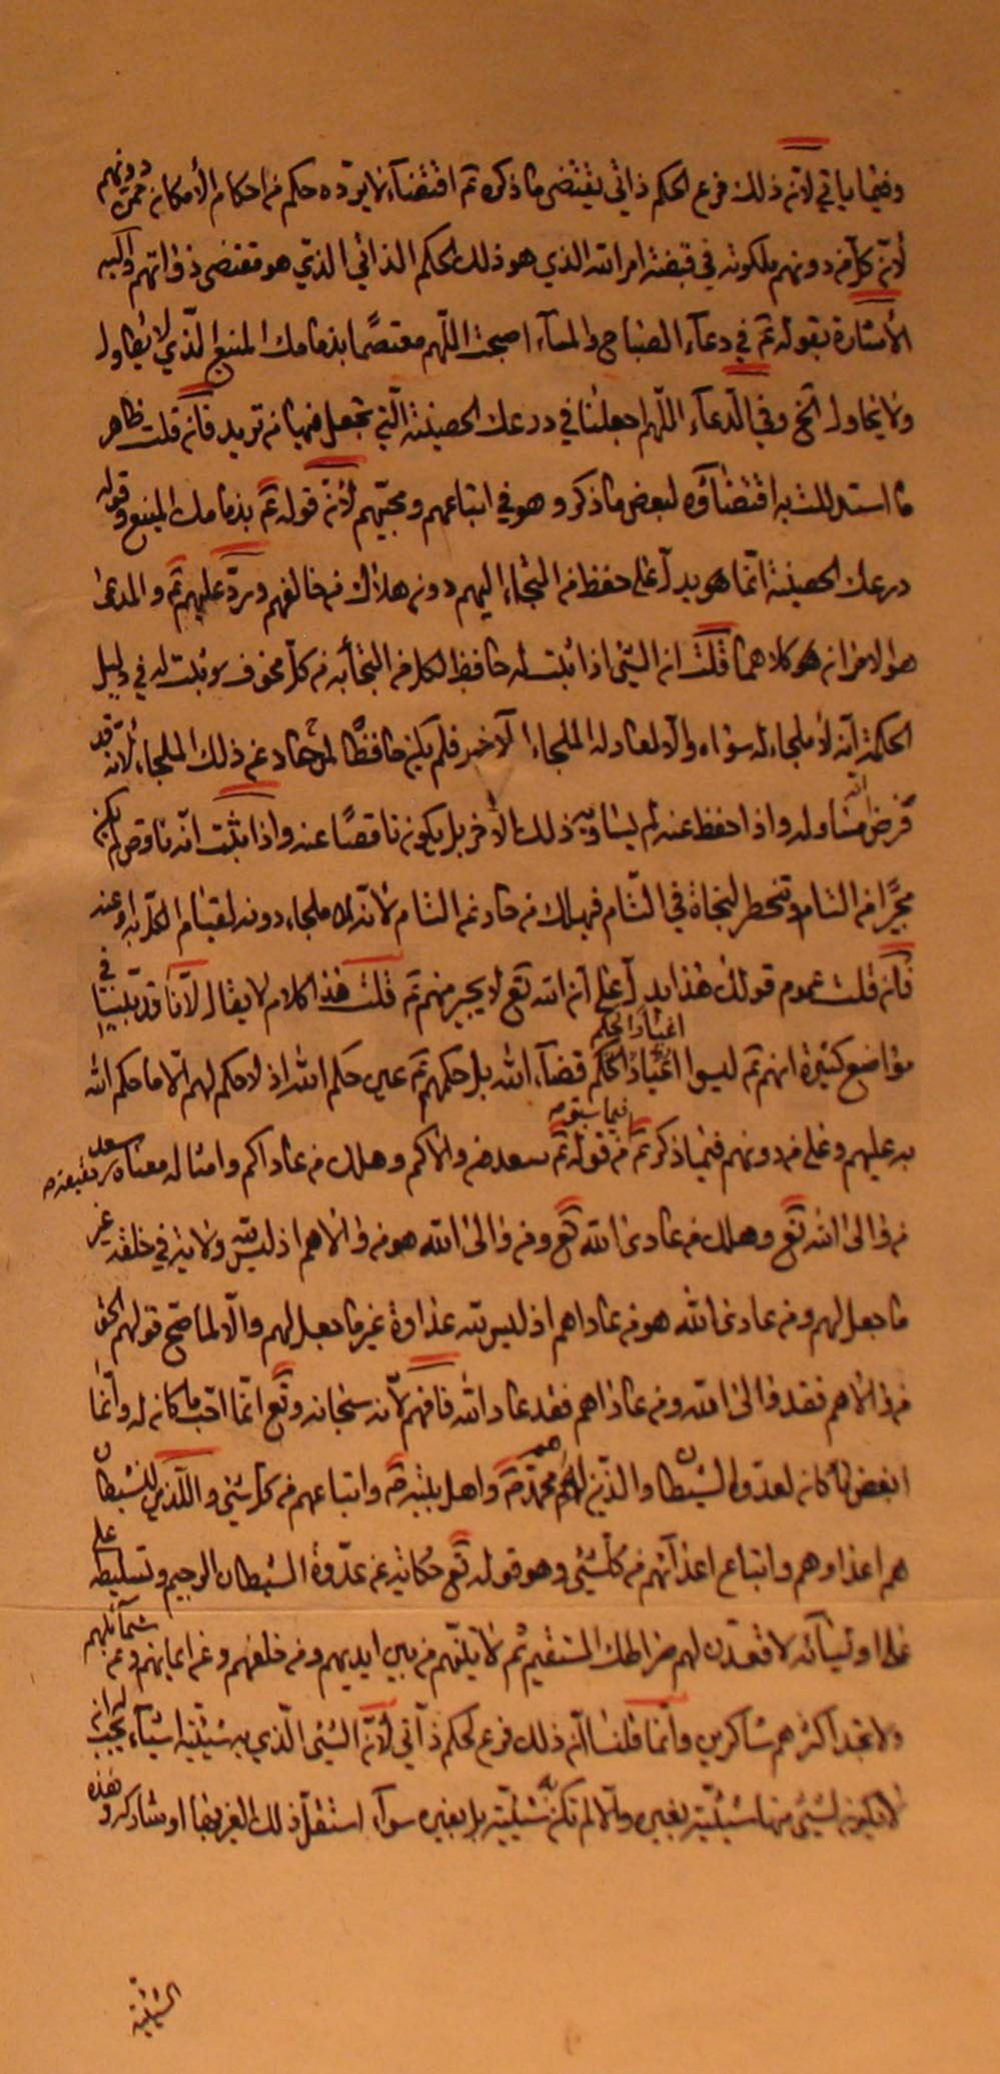 وفيما يأتي لأنّ ذلك فرع لحكم ذاتي يقتضي ما ذكره تم اقتضاء لا يردّه حكم من احكام الأمكان فمن دونهم
لأنّ كل من دونهم ملكوته في قبضته امر الله الذي هو ذلك الحكم الذاتي الذي هو مقتضى ذواتهم واليه
الأشارة بقوله عم في دعاء الصباح والمساء اصبحت اللهم معتصمًا بذمامك المنيع الذي لا يطاول
ولا يحاول الخ وفي الدعاء اللهم اجعلنا في درعك الحصينة الّتي تجعل فيها من تريد فان قلت ظاهر
ما استدللت به اقتضاؤه لبعض ما ذكر وهو في اتباعهم ومحبّيهم لأنّ قوله عم بذمامك المنيع وقوله
درعك الحصينة انّما هو يدل على حفظ من التجاء اليهم دون هلاك من خالفهم وردّ عليهم عم والمدعى
هو الامران هو كلاهما قلت ان الشئ اذا ثبت انه حافظ لكل من التجأ به من كلّ مخوف وثبت له في دليل
الحكمة انّه لا ملجاء له سواه والّا لعادله الملجاء الآخر فلم يكن حافظًا لمن حاد عن ذلك الملجاء لأنّه قد
فرض انّه مساوله واذا حفظ عنه لم يساوه ذلك الآخر بل يكون ناقصًا عنه واذا ثبت انّه ناقص لم يكن
مجيرًا من التام وتنحصر النجاة في التّام فيهلك من حاد عن التام لأنّه لا ملجاء دونه لقيام الكلّ به وعنه
فان قلت عموم قولك هذا يدل على ان الله تع لا يجير منهم عم قلت هذا كلام لا يقال لأنّا قد بيّنا في
مواضع كثيرة انهم عم ليسوا اغيار الحكم اغيارًا لحكم قضاء الله بل حكمهم عم عين حكم الله اذ لا حكم لهم الّا ما حكم الله
به عليهم وعلى من دونهم فيما ذكر عم من قوله عم فيما سبق سعد من والاكم وهلك من عاداكم وامثاله معناه سعد
من والى الله تع وهلك من عادى الله تع ومن والى الله هو من والاهم اذ ليس لله ولاية في خلقه غير
ما جعل لهم ومن عادى الله هو من عاداهم اذ ليس لله عداوة غير ما جعل لهم والّا لما صحّ قولهم الحق
من والاهم فقد والى الله ومن عاداهم فقد عاد الله فافهم لأنّه سبحانه وتع انّما احبّ ما كان له وانّما
ابغض ما كان لعدوه الشيطان والّذين له هم محمّد ص واهل بيته ص واتباعهم من كل شئ والّذين للشيطان
هم اعداوهم واتباع اعدائهم من كل شئ وهو قوله تع حكاية عن عدوه الشيطان الرجيم وتسليطه على
على اوليائه لاقعدن لهم صراطك المستقيم ثم لاتينّهم من بين ايديهم ومن خلفهم وعن ايمانهم وعن شمائلهم
ولا تجد اكثرهم شاكرين وانّما قلنا انّ ذلك فرع لحكم ذاتي لأنّ الشئ الّذي به شيئية اشياء يجب له ان
لا يكون لشئ منها شيئيّة بغيره والّا لم تكن شيئيّته به بل بغيره سواء استقلّ ذلك الغير بها او شاركه وهذه
الشيئية